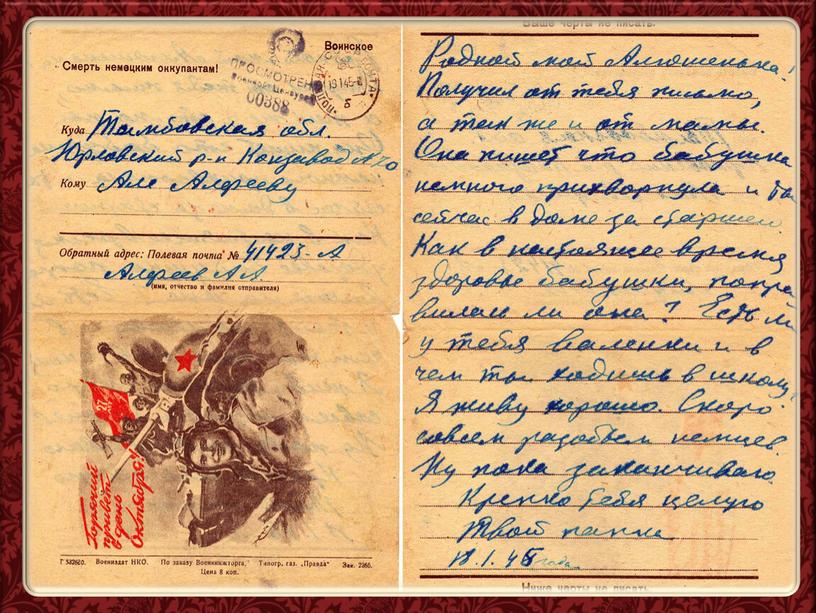 Воинское
Смерть немецким оккупантам!
ПРОСМОТРЕНО
Военной Цензурой
00388
19 1 45
Куда Тамбовская обл.
Юрловский р-н Конзавод №
Кому Але Алфееву
Обратный адрес: Полевая почта № 41423-А
Алфеев А А
(имя, отчество и фамилия отправителя)
27
Горячий
привет
в день
Октября!
Г 582610. Воениздат НКО. По заказу Военкнижторга. Типогр. газ. „Правда" Зак. 2260.
Цена 8 коп.
Выше черты не писать.
Родной мой Алюшенька!
Получил от тебя письмо,
а так же и от мамы.
Она пишет что бабушка
немного прихворнула и ты
сейчас в доме за старшего.
Как в настоящее время
здоровье бабушки, попра
вилась ли она? Есть ли
у тебя валенки и в
чем ты ходишь в школу?
Я живу хорошо. Скоро
совсем разобьем немцев.
Ну пока заканчиваю
Крепко тебя целую
Твой папка
18.1.45 года
Ниже черты не писать